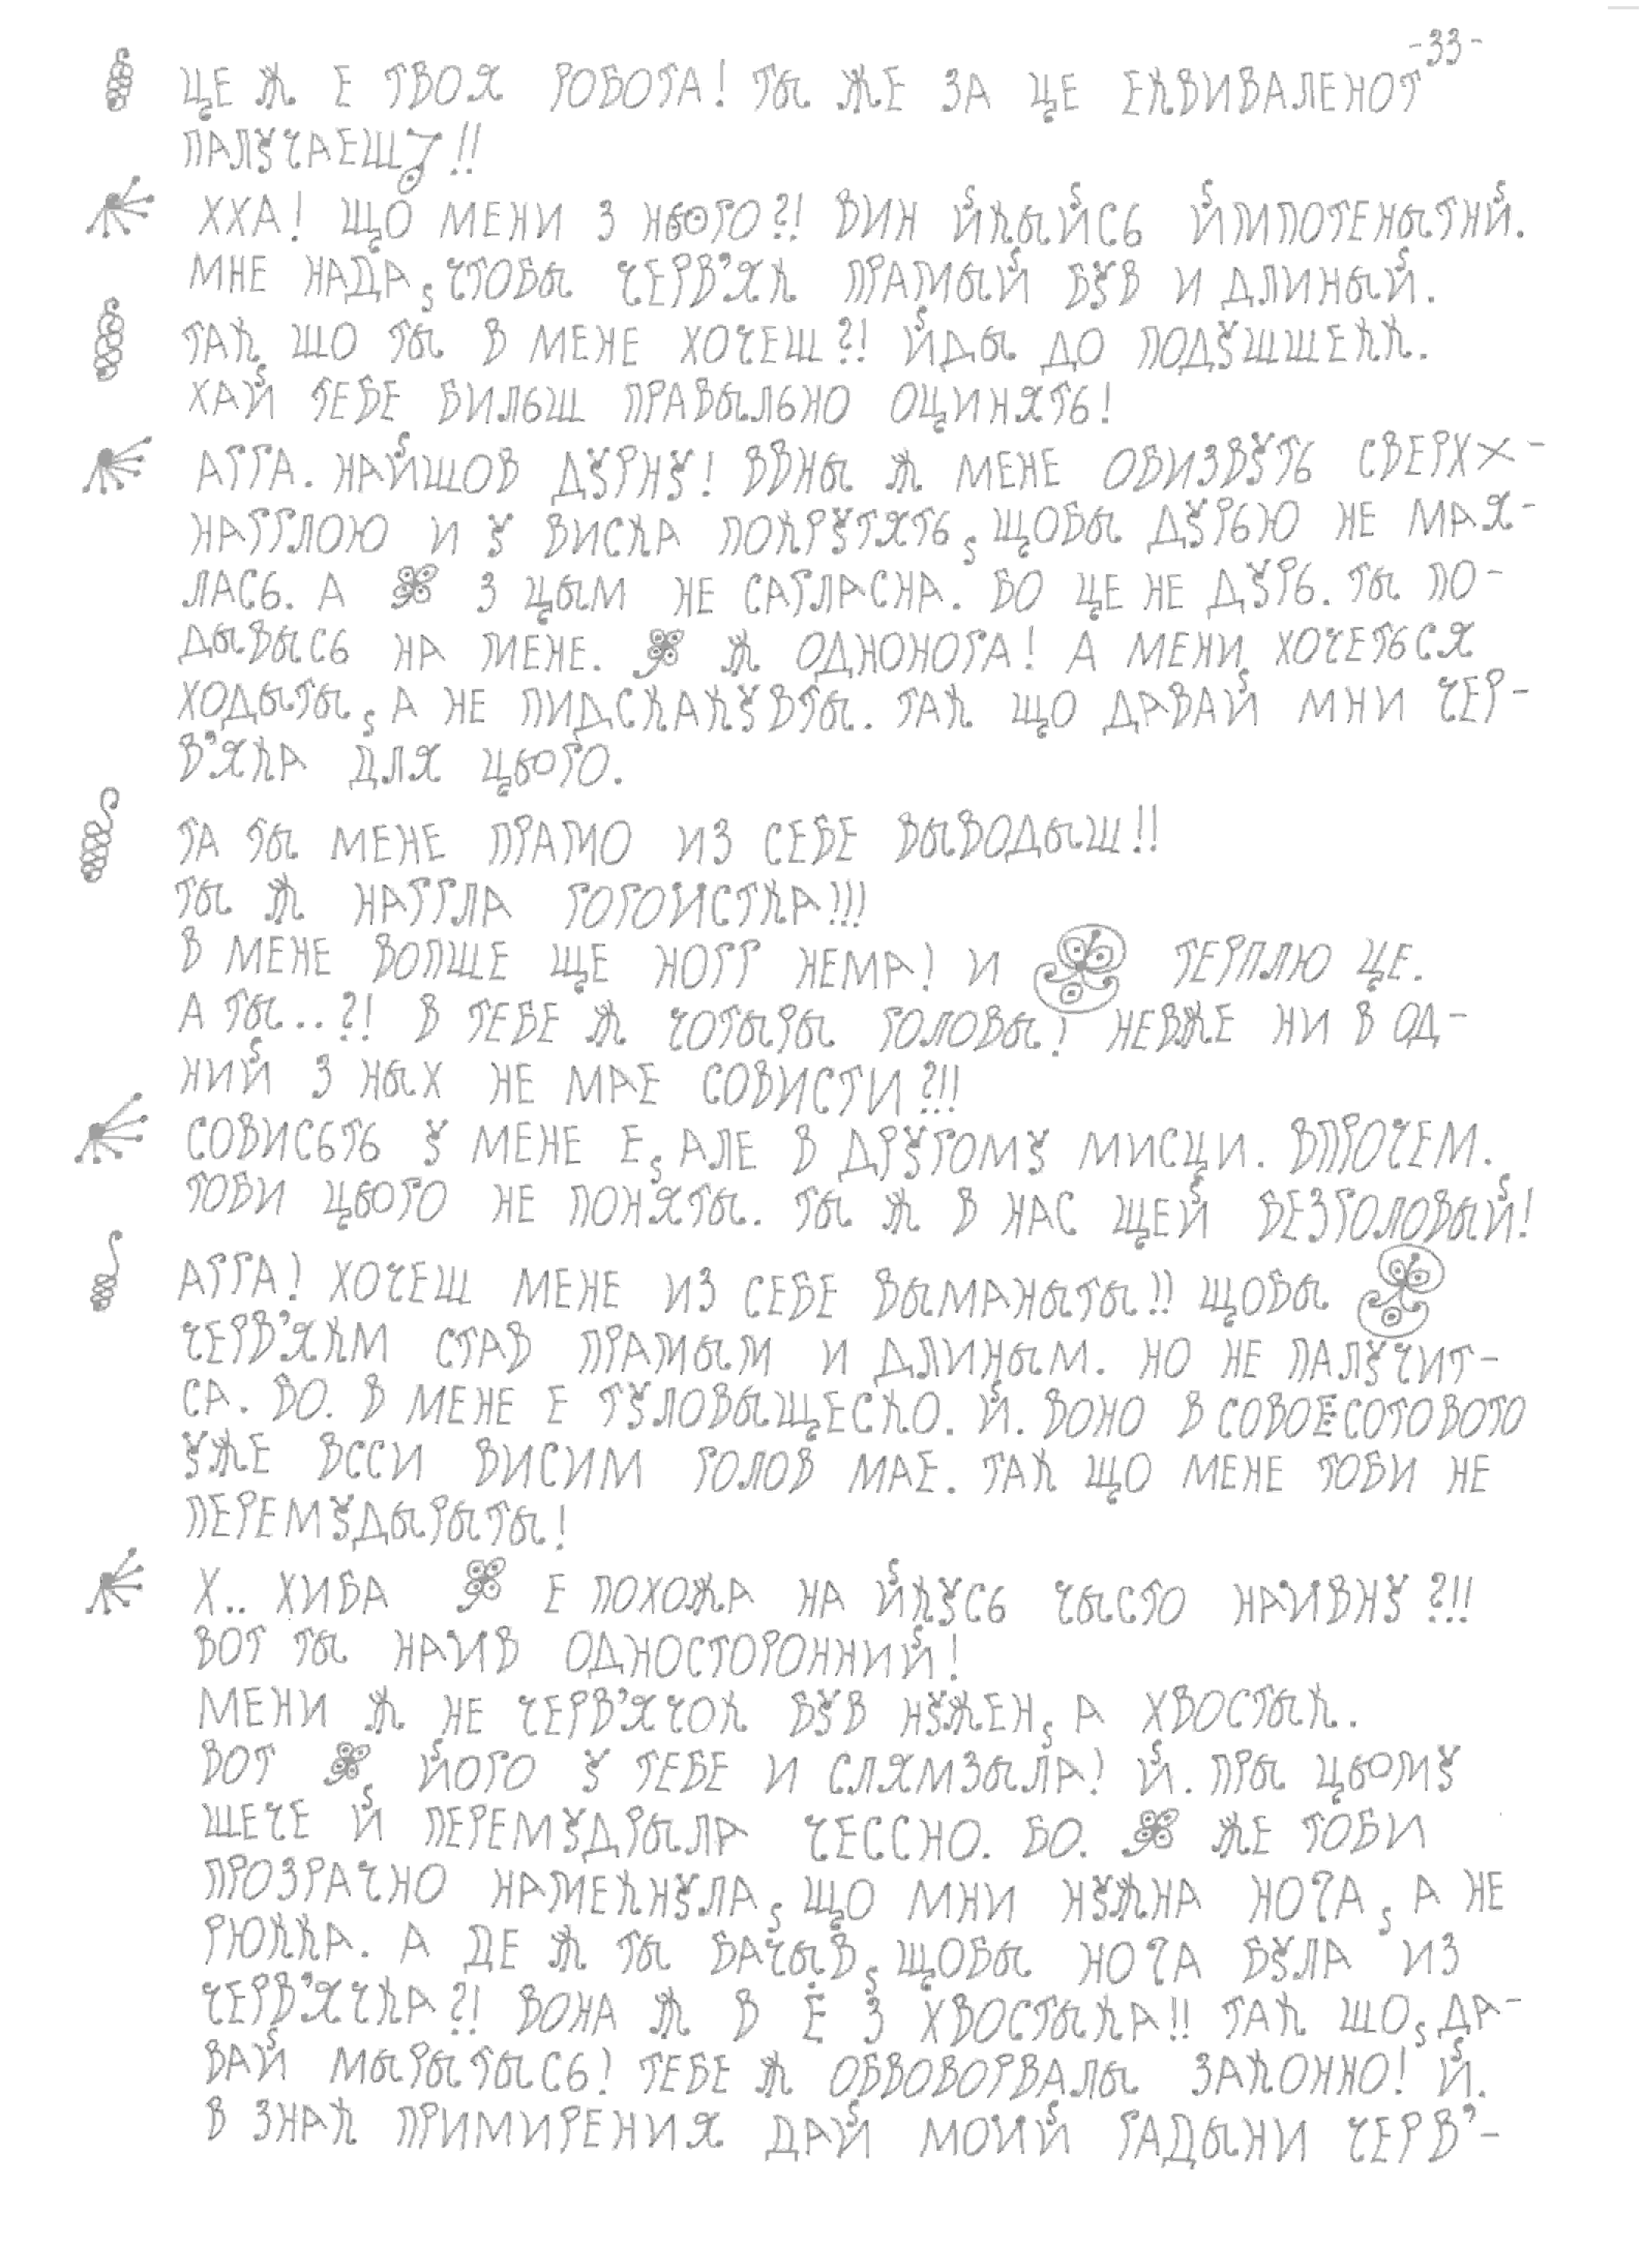 -33-
ЦЕ Ж Е ТВОЯ РОБОТА! ТЫ ЖЕ ЗА ЦЕ ЕКВИВАЛЕНОТ
ПАЛУЧАЕШ!!
ХХА! ЩО МЕНИ З НЬОГО?! ВИН ЙКЫЙСЬ ЙМПОТЕНЫТНЙ.
МНЕ НАДА, ЧТОБЫ ЧЕРВ'ЯК ПРАМЫЙ БУВ И ДЛИНЫЙ.
ТАК ШО ТЫ В МЕНЕ ХОЧЕШ?! ЙДЫ ДО ПОДУШШЕКК.
ХАЙ ТЕБЕ БИЛЬШ ПРАВЫЛЬНО ОЦИНЯТЬ!
АГГА. НАЙШОВ ДУРНУ! ВВНЫ Ж МЕНЕ ОБИЗВУТЬ СВЕРХХ-
НАГГЛОЮ И У ВИСКА ПОКРУТЯТЬ, ЩОБЫ ДУРЬЮ НЕ МАЯ-
ЛАСЬ. А З ЦЫМ НЕ САГЛАСНА. БО ЦЕ НЕ ДУРЬ. ТЫ ПО-
ДЫВЫСЬ НА МЕНЕ. Ж ОДНОНОГА! А МЕНИ ХОЧЕТЬСЯ
ХОДЫТЫ, А НЕ ПИДСКАКУВТЫ. ТАК ЩО ДАВАЙ МНИ ЧЕР-
В'ЯКА ДЛЯ ЦЬОГО.
ТА ТЫ МЕНЕ ПРАМО ИЗ СЕБЕ ВЫВОДЫШ!!
ТЫ Ж НАГГЛА ГОГОИСТКА!!!
В МЕНЕ ВОПШЕ ЩЕ НОГГ НЕМА! И ТЕРПЛЮ ЦЕ.
А ТЫ...?! В ТЕБЕ Ж ЧОТЫРЫ ГОЛОВЫ! НЕВЖЕ НИ В ОД-
НИЙ З НЫХ НЕ МАЕ СОВИСТИ?!!
СОВИСЬТЬ У МЕНЕ Е, АЛЕ В ДРУГОМУ МИСЦИ. ВПРОЧЕМ.
ТОБИ ЦЬОГО НЕ ПОНЯТЫ. ТЫ Ж В НАС ЩЕЙ БЕЗГОЛОВЫЙ!
АГГА! ХОЧЕШ МЕНЕ ИЗ СЕБЕ ВЫМАНЫТЫ!! ЩОБЫ
ЧЕРВ'ЯКМ СТАВ ПРАМЫМ И ДЛИНЫМ. НО НЕ ПАЛУЧИТ-
СА. БО. В МЕНЕ Е ТУЛОВЫЩЕСКО. Й. ВОНО В СОВОЕСОТОВОТО
УЖЕ ВССИ ВИСИМ ГОЛОВ МАЕ. ТАК ЩО МЕНЕ ТОБИ НЕ
ПЕРЕМУДЫРЫТЫ!
Х.. ХИБА Е ПОХОЖА НА ЙКУСЬ ЧЫСТО НАИВНУ?!!
ВОТ ТЫ НАИВ ОДНОСТОРОННИЙ!
МЕНИ Ж НЕ ЧЕРВ'ЯЧОК БУВ НУЖЕН, А ХВОСТЫК.
ВОТ ЙОГО У ТЕБЕ И СЛЯМЗЫЛА! Й. ПРЫ ЦЬОМУ
ШЕЧЕ Й ПЕРЕМУДРЫЛА ЧЕССНО. БО. ЖЕ ТОБИ
ПРОЗРАЧНО НАМЕКНУЛА, ЩО МНИ НУЖНА НОЧА, А НЕ
РЮККА. А ДЕ Ж ТЫ БАЧЫВ, ЩОБЫ НОЧА БУЛА ИЗ
ЧЕРВ'ЯЧКА?! ВОНА Ж В Ё З ХВОСТЫКА!! ТАК ШО, ДА-
ВАЙ МЫРЫТЫСЬ! ТЕБЕ Ж ОБВОВОРВАЛЫ ЗАКОННО! Й.
В ЗНАК ПРИМИРЕНИЯ ДАЙ МОИЙ ГАДЫНИ ЧЕРВ'-